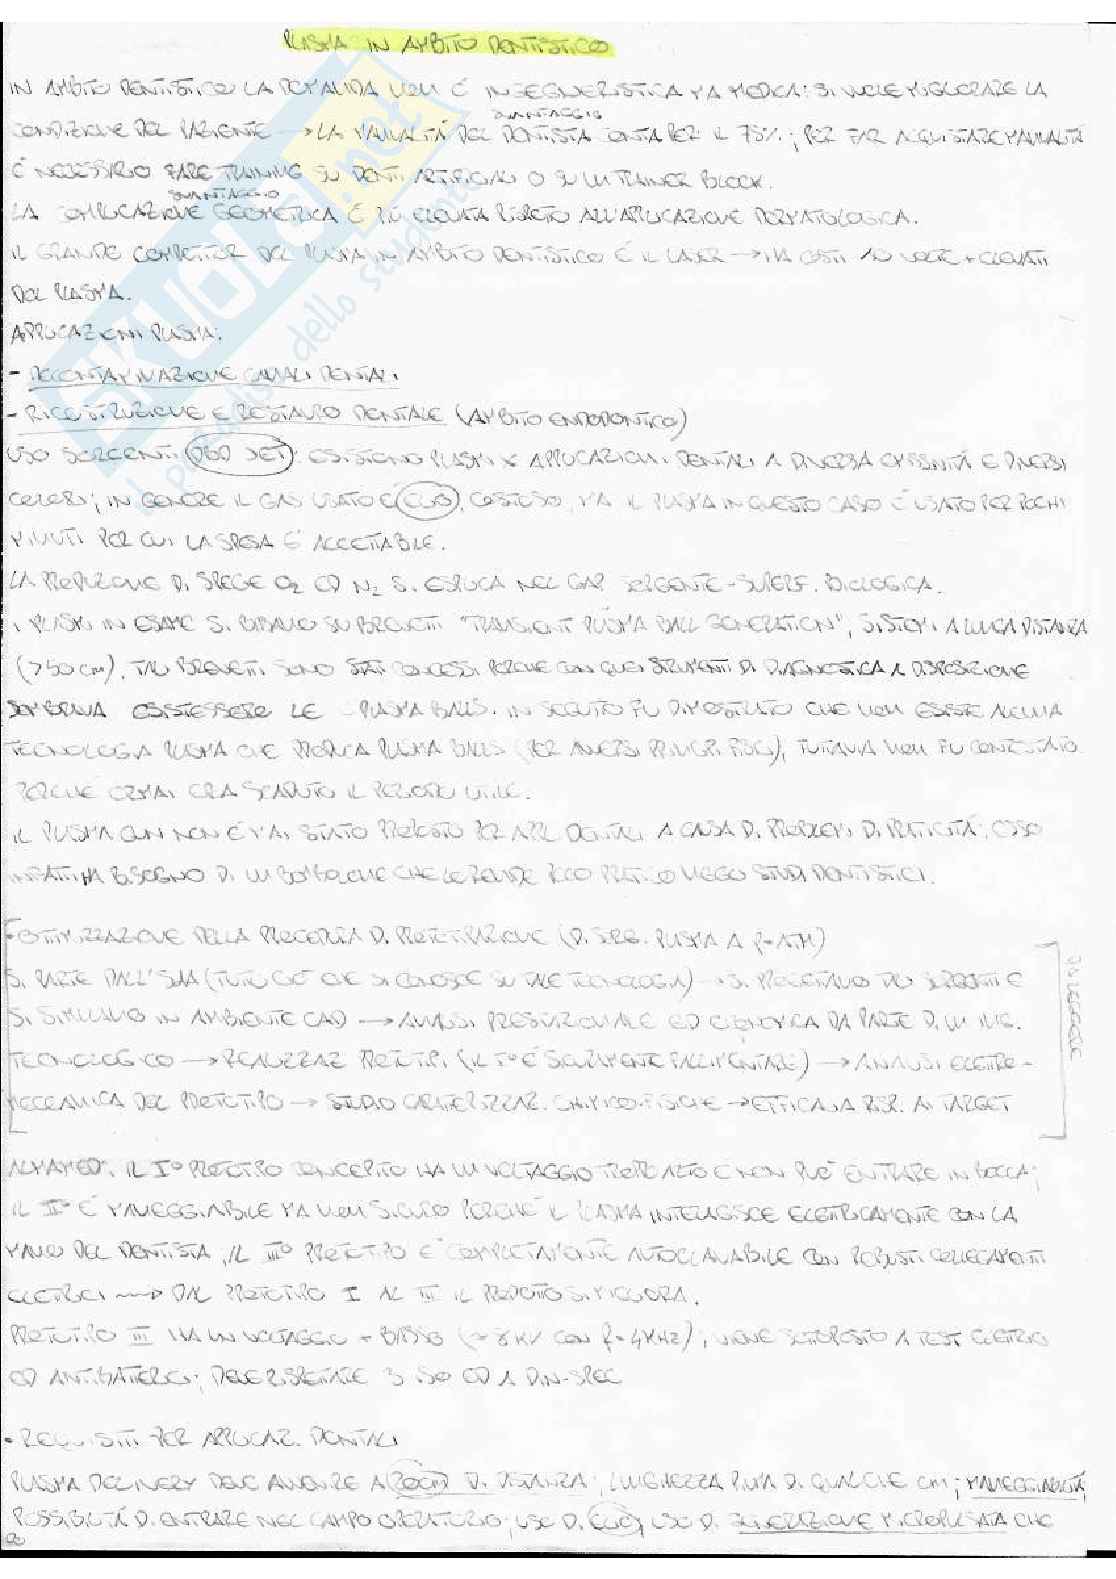 PLASMA IN AMBITO DENTISTICO
IN AMBITO DENTISTICO LA DOMANDA NON È INGEGNERISTICA MA MEDICA: SI VUOLE MIGLIORARE LA
SVANTAGGIO
CONDIZIONE DEL PAZIENTE → LA MANUALITÀ DEL DENTISTA CONTA PER IL 75%; PER FAR ACQUISTARE MANUALITÀ
È NECESSARIO FARE TRAINING SU DENTI ARTIFICIALI O SU UN TRAINER BLOCK.
SVANTAGGIO
LA COMPLICAZIONE GEOMETRICA È PIÙ ELEVATA RISPETTO ALL'APPLICAZIONE DERMATOLOGICA.
IL GRANDE COMPETITOR DEL PLASMA IN AMBITO DENTISTICO È IL LASER → HA COSTI 10 VOLTE + ELEVATI
DEL PLASMA.
APPLICAZIONI PLASMA:
- DECONTAMINAZIONE CANALI DENTALI
- RICOSTRUZIONE E RESTAURO DENTALE (AMBITO ENDODONTICO)
USO SORGENTI DBD JET: ESISTONO PLASMI x APPLICAZIONI DENTALI A DIVERSA EMISSIVITÀ E DIVERSI
COLORI; IN GENERE IL GAS USATO È ELIO, COSTOSO, MA IL PLASMA IN QUESTO CASO È USATO PER POCHI
MINUTI PER CUI LA SPESA È ACCETTABILE.
LA PRODUZIONE DI SPECIE O2 ED N2 SI ESPLICA NEL GAP SORGENTE-SUPERF. BIOLOGICA.
I PLASMI IN ESAME SI BASANO SU BREVETTI "TRANSIENT PLASMA BALL GENERATION", SISTEMI A LUNGA DISTANZA
(>50 cm). TALI BREVETTI SONO STATI CONCESSI PERCHÈ CON QUEI STRUMENTI DI DIAGNOSTICA A DISPOSIZIONE
SEMBRAVA ESISTESSERO LE PLASMA BALLS. IN SEGUITO FU DIMOSTRATO CHE NON ESISTE ALCUNA
TECNOLOGIA PLASMA CHE PRODUCA PLASMA BALLS (PER DIVERSI PRINCIPI FISICI), TUTTAVIA NON FU CONTESTATO
PERCHÈ ORMAI ERA SCADUTO IL PERIODO UTILE.
IL PLASMA GUN NON È MAI STATO PROPOSTO PER APPL. DENTALI A CAUSA DI PROBLEMI DI PRATICITÀ; ESSO
INFATTI HA BISOGNO DI UN BOMBOLONE CHE LO RENDE POCO PRATICO NEGLI STUDI DENTISTICI.
- OTTIMIZZAZIONE DELLA PROCEDURA DI PROTOTIPAZIONE (DI SORG. PLASMA A p=ATM)
SI PARTE DALL' SOA (TUTTO CIÒ CHE SI CONOSCE SU TALE TECNOLOGIA) → SI PROGETTANO SORGENTI E
SI SIMULANO IN AMBIENTE CAD → ANALISI PRESTAZIONALE ED ECONOMICA DA PARTE DI UN ING.
TECNOLOGICO → REALIZZAZ. PROTOTIPI (IL 1° È SICURAMENTE FALLIMENTARE) → ANALISI ELETTRO-
MECCANICA DEL PROTOTIPO → STUDIO CARATTERIZZAZ. CHIMICO-FISICHE → EFFICACIA RISP. AI TARGET
DA LEGGERE
ALMAMED: IL I° PROTOTIPO CONCEPITO HA UN VOLTAGGIO TROPPO ALTO E NON PUÒ ENTRARE IN BOCCA;
IL II° È MANEGGIABILE MA NON SICURO PERCHÈ IL PLASMA INTERAGISCE ELETTRICAMENTE CON LA
MANO DEL DENTISTA, IL III° PROTOTIPO È COMPLETAMENTE AUTOCLAVABILE CON ROBUSTI COLLEGAMENTI
ELETTRICI → DAL PROTOTIPO I AL III IL PRODOTTO SI MIGLIORA.
PROTOTIPO III HA UN VOLTAGGIO + BASSO (≈ 8 KV CON f=4KHz), VIENE SOTTOPOSTO A TEST ELETTRICI
ED ANTIBATTERICI; DEVE RISPETTARE 3 ISO ED 1 DIN-SPEC
• REQUISITI PER APPLICAZ. DENTALI
PLASMA DELIVERY DEVE AVVENIRE A POCHI DI DISTANZA; LUNGHEZZA PIUMA DI QUALCHE cm; MANEGGIABILITÀ,
POSSIBILITÀ DI ENTRARE NEL CAMPO OPERATORIO; USO DI ELIO; USO DI GENERAZIONE MICROPULSATA CHE